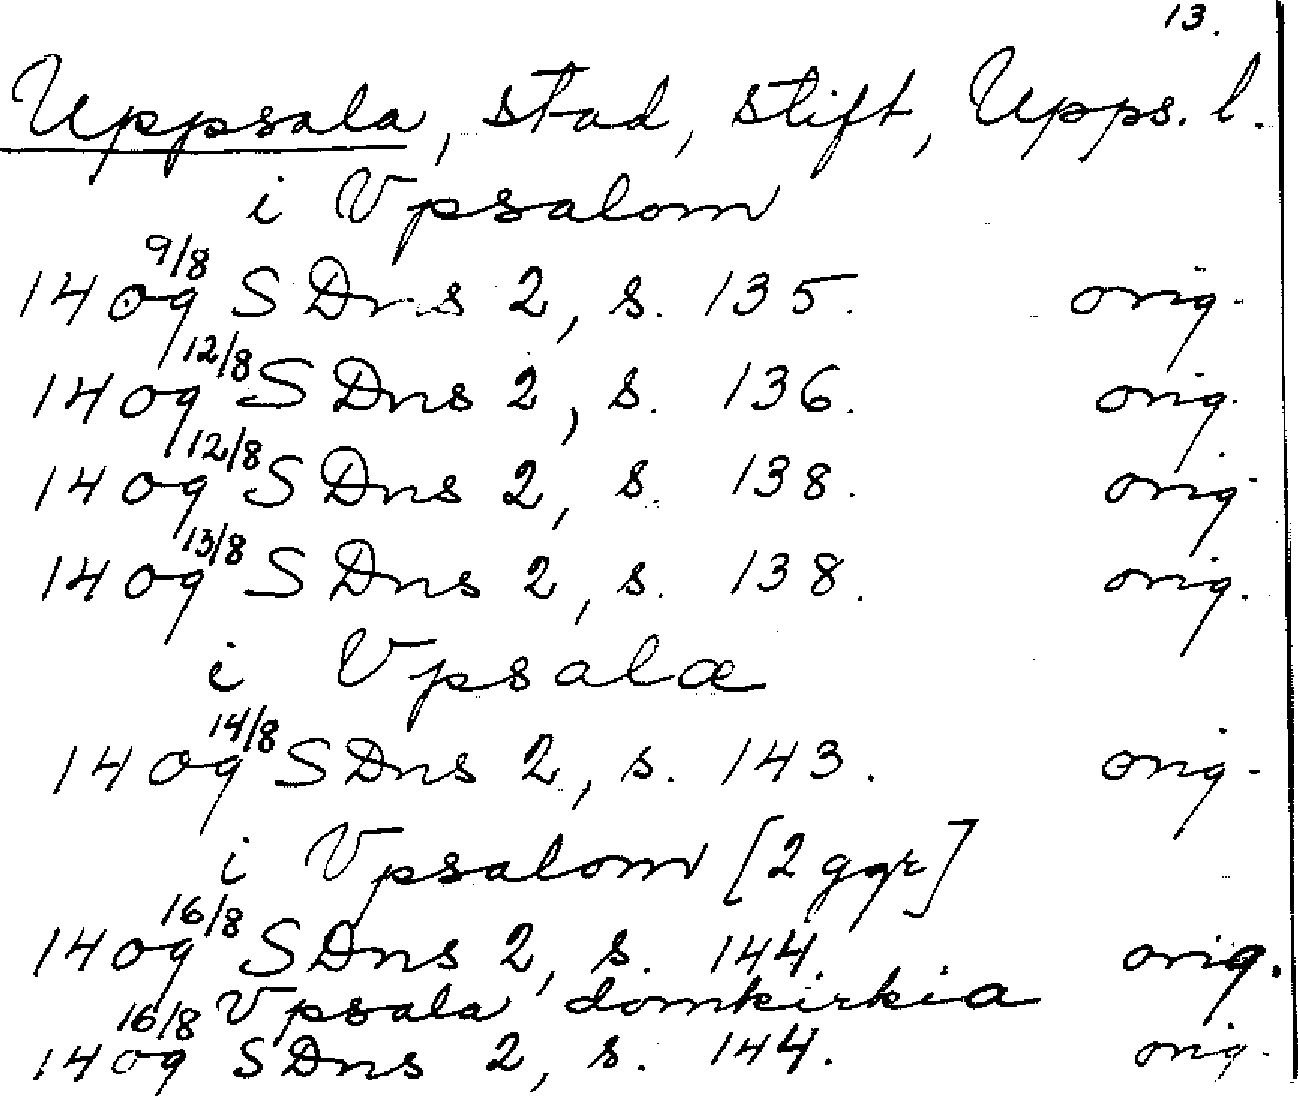 13.
Uppsala, stad, stift, Upps. l.
i Vpsalom
1409 9/8 SDns 2, s. 135. orig.
1409 12/8 SDns 2, s. 136. orig.
1409 12/8 SDns 2, s. 138. orig
1409 13/8 SDns 2, s. 138. orig.
i Vpsalæ
1409 14/8 SDns 2, s. 143. orig.
i Vpsalom [2 ggr]
1409 16/8 SDns 2, s. 144. orig.
Vpsala domkirkia
1409 16/8 SDns 2, s. 144. orig.